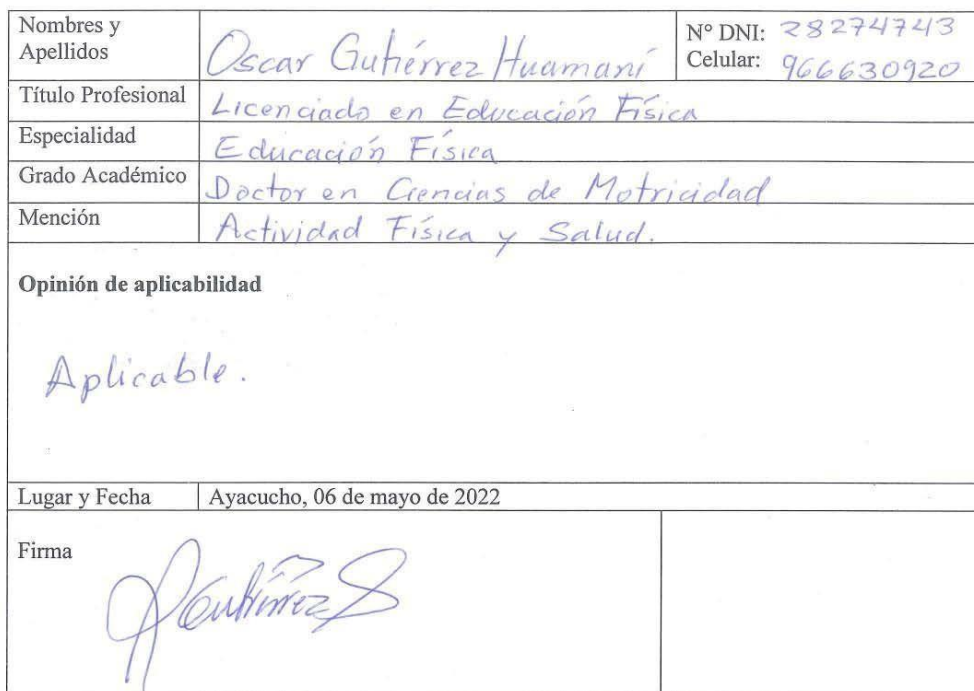 Nombres y Apellidos
Oscar Gutiérrez Huamaní
N° DNI: 28274743
Celular: 966630920
Título Profesional Licenciado en Educación Física
Especialidad Educación Física
Grado Académico Doctor en Ciencias de Motricidad
Mención Actividad Física y Salud.
Opinión de aplicabilidad
Aplicable.
Lugar y Fecha Ayacucho, 06 de mayo de 2022
Firma
Gutiérrez